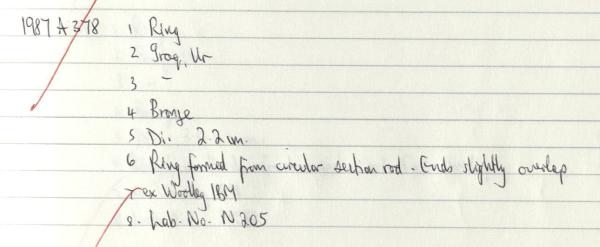 1987 A 378 1 Ring
2 Iraq, Ur
3 -
4 Bronze
5 Di. 2.2 cm.
6 Ring formed from circular section rod. Ends slightly overlap
7 ex Woolley IBM
8. Lab. No. N 205